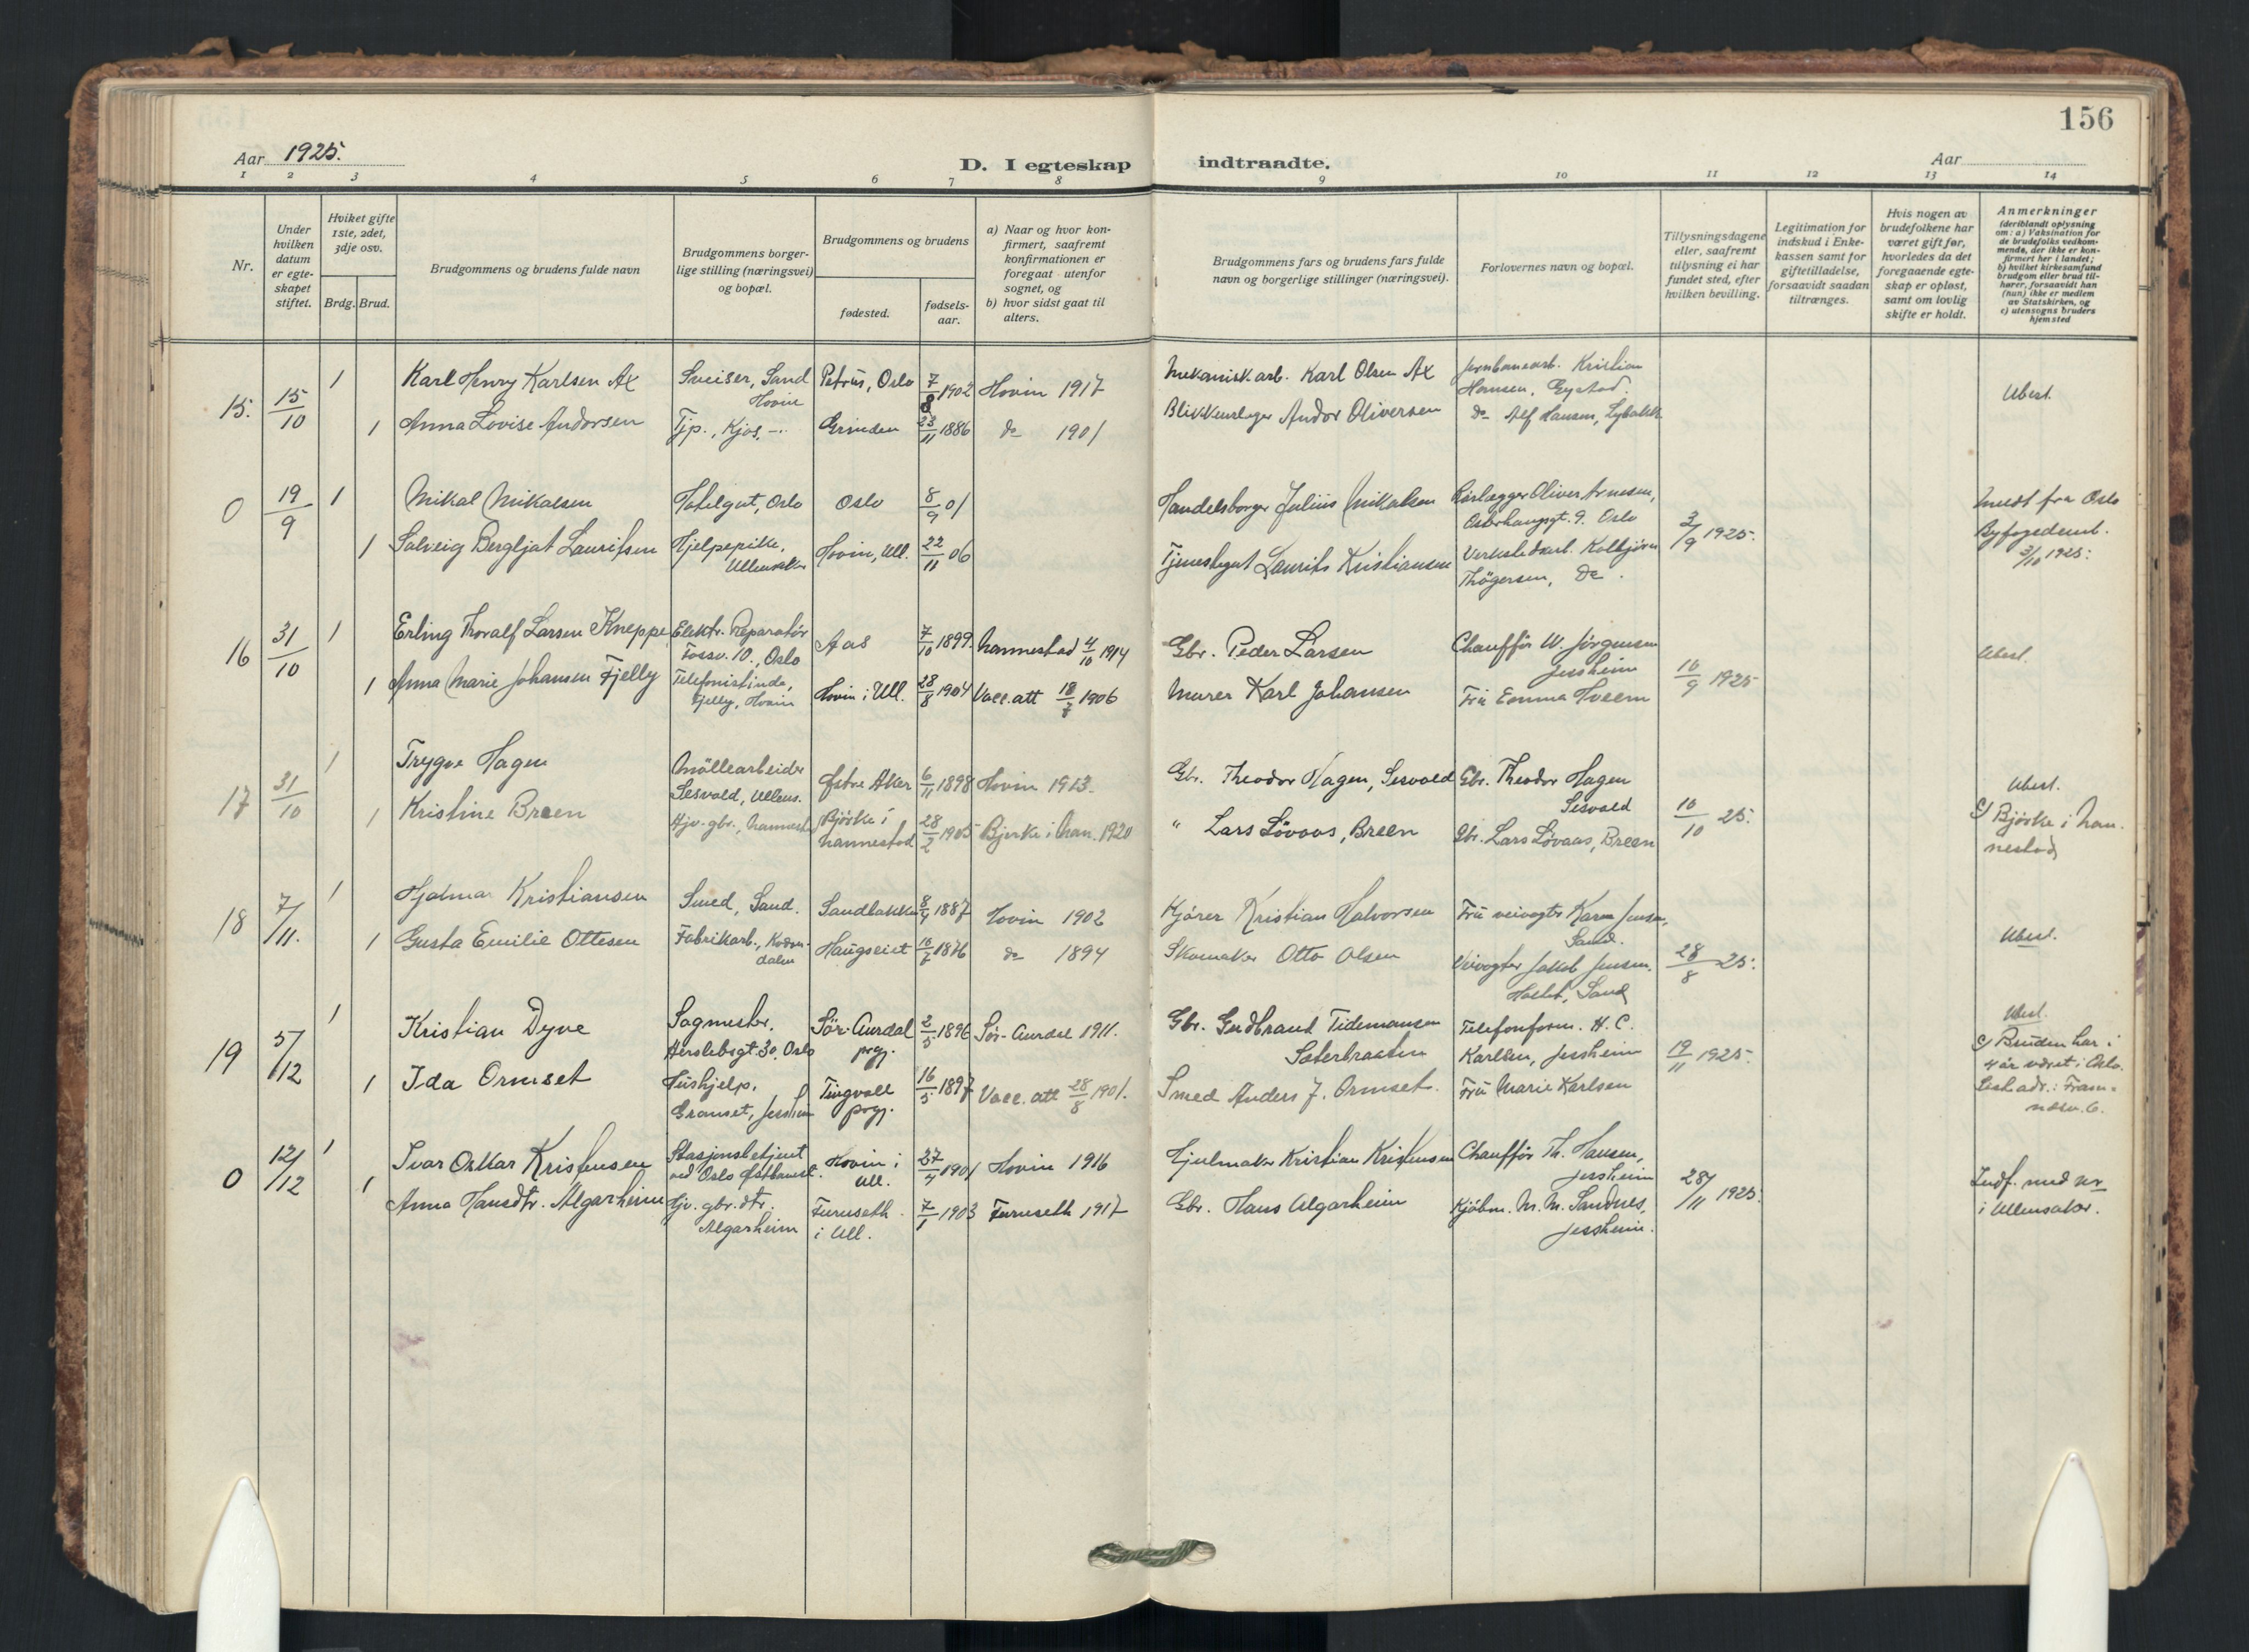 156
Aar 1925.
D. I egteskap indtraadte.
Aar
1 2 3 4 5 6 7 8 9 10 11 12 13 14
Nr.
Under hvilken datum er egteskapet stiftet.
Hviket gifte 1ste, 2det, 3dje osv.
Brdg. Brud.
Brudgommens og brudens fulde navn
Brudgommens borgerlige stilling (næringsvei) og bopæl.
Brudgommens og brudens
fødested.
fødselsaar.
a) Naar og hvor konfirmert, saafremt konfirmationen er foregaat utenfor sognet, og
b) hvor sidst gaat til alters.
Brudgommens fars og brudens fars fulde navn og borgerlige stillinger (næringsvei).
Forlovernes navn og bopæl.
Tillysningsdagene eller, saafremt tillysning ei har fundet sted, efter hvilken bevilling.
Legitimation for indskud i Enkekassen samt for giftetilladelse, forsaavidt saadan tiltrænges.
Hvis nogen av brudefolkene har været gift før, hvorledes da det foregaaende egteskap er opløst, samt om lovlig skifte er holdt.
Anmerkninger (deriblandt oplysning om: a) Vaksination for de brudefolks vedkommende, der ikke er konfirmert her i landet; b) hvilket kirkesamfund brudgom eller brud tilhører, forsaavidt han (hun) ikke er medlem av Statskirken, og c) utensogns bruders hjemsted
15. 15/10 1 Karl Henry Karlsen Ax Sveiser, Sand Hovin Petrus, Oslo 7/8 1902 Hovin 1917 Mekanisk arb. Karl Olsen Ax Jernbanearb. Kristian Hansen, Gystad. Ubest.
1 Anna Lovise Andorsen Tjp., Kjos, -. Grinden 23/11 1886 do 1901 Blikkenslager Andor Oliversen do Alf Hansen,
0 19/9 1 Mikal Mikalsen Hotelgut, Oslo Oslo 8/9 01 Handelsborger Julius Mikalsen Rørlægger Oliver Arnesen, Oslo
1 Solveig Bergljot Lauritsen Hjelpepike, Ullensaker Hovin, Ull. 22/11 06 Tjenestegut Laurits Kristiansen Verkstedarb. Kolbjørn Thøgersen, do. 3/9 1925.
Meldt fra Oslo Byfogedemb. 3/10 1925.
16 31/10 1 Erling Thoralf Larsen Kneppe Elektr. Reparatør Fossv. 10., Oslo Aas 7/10 1899. Nannestad 4/10 1914 Gbr. Peder Larsen Chauffør W. Jørgensen Jessheim Ubest.
1 Anna Marie Johansen Fjelly Telefonistinde, Fjelly, Hovin Hovin i Ull. 28/8 1904 Vacc. att 18/7 1906 Murer Karl Johansen Fru Emma Hveem 10/9 1925
17 31/10 1 Trygve Hagen Møllearbeider Sesvold, Ullens. Østre Aker 6/11 1898 Hovin 1913. Gbr. Theodor Hagen, Sesvold Gbr. Theodor Hagen Sesvold Ubest.
1 Kristine Breen Hjv. gbr., Nannest. Bjørke i Nannestad 28/2 1905 Bjerke i Nan. 1920 " Lars Løvaas, Breen Gbr. Lars Løvaas, Breen 10/10 25. c) Bjørke i Nannestad
18 7/11. 1 Hjalmar Kristiansen Smed, Sand. Sandbakken 1887 Hovin 1902 Kjører Kristian Halvorsen Fru veivogter Karen Jensen, Sand. Ubest.
1 Gusta Emilie Ottesen Fabrikarb., Haugseiet 1876 do 1894 Skomaker Otto Olsen Veivogter Jakob Jensen. Sand 28/8 25.
19 5/12 1 Kristian Dyve Sagmestr. Herslebsgt. 30. Oslo Sør-Aurdal prgj. 2/5 1896 Sør-Aurdal 1911. Gbr. Gudbrand Tidemansen Sæterbraaten Telefonform. H. C. Karlsen, Jessheim 19/11 1925. Ubest.
1 Ida Ormset Hushjelp. Granset, Jessheim Tingvoll prgj. 16/5 1897 Vacc. att 28/8 1901. Smed Anders J. Ormset. Fru Marie Karlsen
c) Bruden har i 4 år været i Oslo. Sist adr.: Framnæsv. 6.
0 12/12 1 Ivar Oskar Kristensen Stasjonsbetjent ved Oslo Østbanest. Hovin i Ull. 27/4 1901 Hovin 1916 Hjulmaker Kristian Kristensen Chauffør Th. Hansen, Jessheim
1 Anna Hansdtr. Algarheim Hjv. gbr. dtr. Algarheim Furuseth i Ull. 7/1 1903 Furuseth 1917 Gbr. Hans Algarheim Kjøbm. M. M. Sandnes, Jessheim. 28/11 1925.
Indf. med nr i Ullensaker.